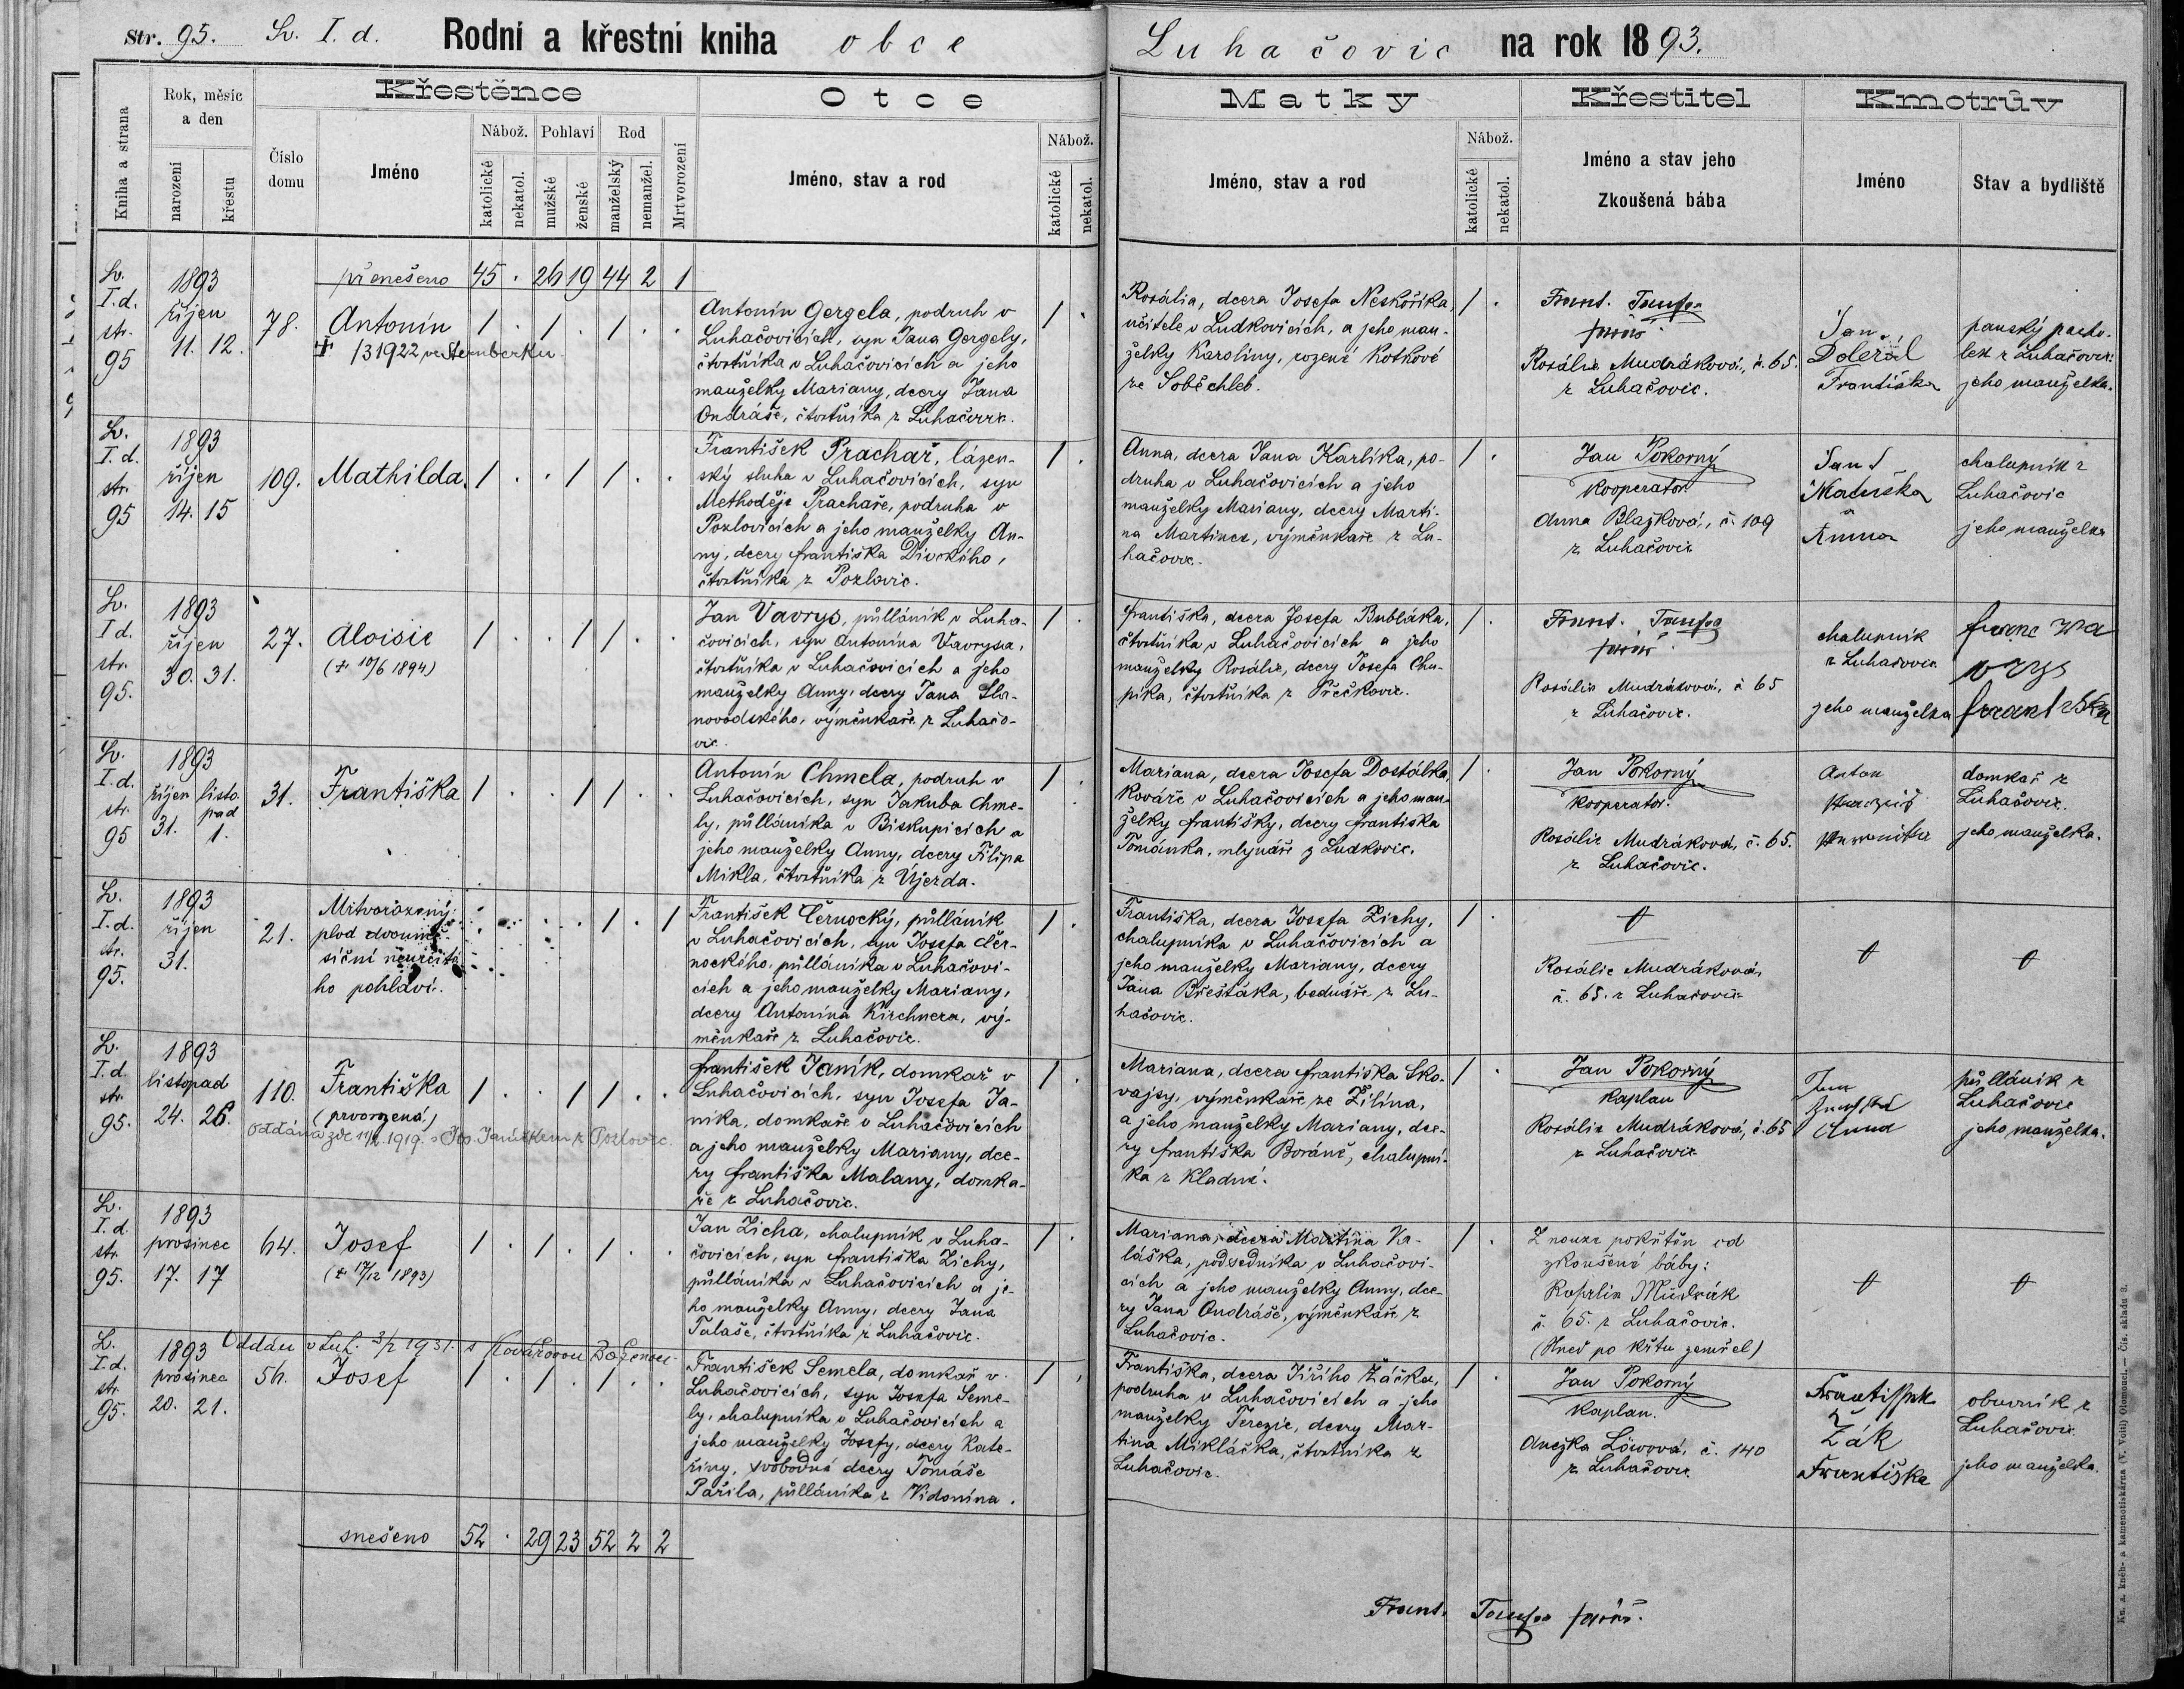 Str. 95. Lu. I. d. Rodní a křestní kniha obce Luhačovic na rok 1893.
Kniha a strana
Rok, měsíc a den
narození
křestu
Číslo domu
Křestěnce
Jméno
Nábož.
katolické
nekatol.
Pohlaví
mužské
ženské
Rod
manželský
nemanžel.
Mrtvorození
Otce
Jméno, stav a rod
Nábož.
katolické
nekatol.
Matky
Jméno, stav a rod
Nábož.
katolické
nekatol.
Křestitel
Jméno a stav jeho
Zkoušená bába
Kmotrův
Jméno
Stav a bydliště
přenešeno 45 . 26 19 44 2 1
Lu.
I.d.
str.
95
1893
říjen
11. 12.
78.
Antonín
+ 1922 ve Šternberku
1 . 1 . 1 . .
Antonín Gergela, podruh v
Luhačovicích, syn Jana Gergely,
čtvrtníka v Luhačovicích a jeho
manželky Mariany, dcery Jana
Ondráše, čtvrtníka z Luhačovic.
1 .
Rosália, dcera Josefa Neskořika,
učitele v Ludkovicích, a jeho man-
želky Karoliny, rozené Kotkové
ze Soběchleb.
1 .
Frant.
farář
Rosálie Mudráková, č. 65.
z Luhačovic.
Jan
Doležal
Františka
panský
z Luhačovic
jeho manželka.
Lu.
I.d.
str.
95
1893
říjen
14. 15
109.
Mathilda.
1 . . 1 1 . .
František Prachař, lázen-
ský sluha v Luhačovicích, syn
Methoděje Prachaře, podruha v
Pozlovicích a jeho manželky An-
ny, dcery Františka Divokého,
čtvrtníka z Pozlovic.
1 .
Anna, dcera Jana Karlíka, po-
druha v Luhačovicích a jeho
manželky Mariany, dcery Marti-
na Martinca, výměnkaře z Lu-
hačovic.
1 .
Jan Pokorný
kooperator
Anna Blažková, č. 109
z Luhačovic
Jan
Matuška
a
Anna
chalupník z
Luhačovic
jeho manželka
Lu.
I d.
str.
95.
1893
říjen
30. 31.
27.
Aloisie
(+ 10/6 1894)
1 . . 1 1 . .
Jan Vavrys, půlláník v Luha-
čovicích, syn Antonína Vavrysa,
čtvrtníka v Luhačovicích a jeho
manželky Anny, dcery Jana Sla-
novodského, výměnkaře z Luhačo-
vic.
1 .
Františka, dcera Josefa Bubláka,
čtvrtníka v Luhačovicích a jeho
manželky Rosálie, dcery Josefa Chu-
píka, čtvrtníka z Přečkovic.
1 .
Frant.
farář
Rosálie Mudráková, č 65
z Luhačovic.
chalupník
z Luhačovic
jeho manželka
franc wa
vrys
Lu.
I.d.
str.
95
1893
říjen listo-
pad
31. 1.
31.
Františka
1 . . 1 1 . .
Antonín Chmela, podruh v
Luhačovicích, syn Jakuba Chme-
ly, půlláníka v Biskupicích a
jeho manželky Anny, dcery Filipa
Mikla, čtvrtníka z Újezda.
1 .
Mariana, dcera Josefa Dostálka,
kováře v Luhačovicích a jeho man-
želky Františky, dcery Františka
Tománka, mlynáře z Ludkovic.
1 .
Jan Pokorný
kooperator.
Rosálie Mudráková, č. 65.
z Luhačovic.
Anton
domkař z
Luhačovic.
jeho manželka.
Lu.
I.d.
str.
95.
1893
říjen
31.
21.
Mrtvorozený
plod dvoumě-
síční neurčité-
ho pohlaví.
. . . . 1 . 1
František Černocký, půlláník
v Luhačovicích, syn Josefa Čer-
nockého, půlláníka v Luhačovi-
cích a jeho manželky Mariany,
dcery Antonína Kirchnera, vý-
měnkaře z Luhačovic.
1 .
Františka, dcera Josefa Zichy,
chalupníka v Luhačovicích a
jeho manželky Mariany, dcery
Jana Břešťáka, bednáře z Lu-
hačovic.
1 .
Rosálie Mudráková,
č. 65. z Luhačovic
Lu.
I.d.
str.
95.
1893
listopad
24. 26.
110.
Františka
(prvorozená)
oddána zde 1919. s Jos. Janůškem z Pozlovic.
1 . . 1 1 . .
František Janík, domkař v
Luhačovicích, syn Josefa Ja-
níka, domkaře v Luhačovicích
a jeho manželky Mariany, dce-
ry Františka Malany, domka-
ře z Luhačovic.
1 .
Mariana, dcera Františka Sko-
vajsy, výměnkaře ze Žilína,
a jeho manželky Mariany, dce-
ry Františka Boráně, chalupní-
ka z Kladné.
1 .
Jan Pokorný
kaplan
Rosálie Mudráková, č. 65
z Luhačovic
půlláník z
Luhačovic
jeho manželka.
Lu.
I.d.
str.
95.
1893
prosinec
17. 17
64.
Josef
(+ 17/12 1893)
1 . 1 . 1 . .
Jan Zicha, chalupník v Luha-
čovicích, syn Františka Zichy,
půlláníka v Luhačovicích a je-
ho manželky Anny, dcery Jana
Talaše, čtvrtníka z Luhačovic.
1 .
Mariana, dcera Martina Va-
láška, podsedníka v Luhačovi-
cích a jeho manželky Anny, dce-
ry Jana Ondráše, výměnkaře z
Luhačovic.
1 .
Z nouze pokřtěn od
zkoušené báby:
Rosalie Mudrák
č. 65. z Luhačovic.
(Hned po křtu zemřel)
Lu.
I.d.
str.
95.
1893
prosinec
20. 21.
56.
Oddán v Luh. 3/2 1931. s Kovářovou Boženou
Josef
1 . 1 . 1 . .
František Semela, domkař v
Luhačovicích, syn Josefa Seme-
ly, chalupníka v Luhačovicích a
jeho manželky Josefy, dcery Kate-
řiny, svobodné dcery Tomáše
Pařila, půlláníka z Vidonína.
1 .
Františka, dcera Jiřího Žáčka,
podruha v Luhačovicích a jeho
manželky Terezie, dcery Mar-
tina Mikláška, čtvrtníka z
Luhačovic.
1 .
Jan Pokorný
kaplan.
Anežka Löwová, č. 140
z Luhačovic
Frantisek
Žák
Františka
obuvník z
Luhačovic
jeho manželka.
snešeno 52 . 29 23 52 2 2
Frant. farář.
Kn. a. kněh- a kamenotiskárna (V. Voitl) Olomouci. — Čís. skladu 3.